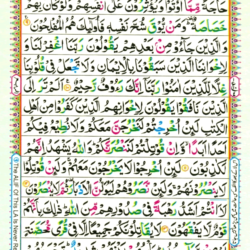 حَاجَةً مِّمَّآ اُوْتُوْا وَيُؤْثِرُوْنَ عَلٰٓى اَنْفُسِهِمْ وَلَوْ كَانَ بِهِمْ
خَصَاصَةٌ ۚ وَمَنْ يُّوْقَ شُحَّ نَفْسِهٖ فَاُولٰٓئِكَ هُمُ الْمُفْلِحُوْنَ
وَالَّذِيْنَ جَآءُوْ مِنْۢ بَعْدِهِمْ يَقُوْلُوْنَ رَبَّنَا اغْفِرْ لَنَا
وَلِاِخْوَانِنَا الَّذِيْنَ سَبَقُوْنَا بِالْاِيْمَانِ وَلَا تَجْعَلْ فِيْ قُلُوْبِنَا
غِلًّا لِّلَّذِيْنَ اٰمَنُوْا رَبَّنَآ اِنَّكَ رَءُوْفٌ رَّحِيْمٌ اَلَمْ تَرَ اِلَى
الَّذِيْنَ نَافَقُوْا يَقُوْلُوْنَ لِاِخْوَانِهِمُ الَّذِيْنَ كَفَرُوْا مِنْ اَهْلِ
الْكِتٰبِ لَئِنْ اُخْرِجْتُمْ لَنَخْرُجَنَّ مَعَكُمْ وَلَا نُطِيْعُ فِيْكُمْ
اَحَدًا اَبَدًا وَّاِنْ قُوْتِلْتُمْ لَنَنْصُرَنَّكُمْ وَاللّٰهُ يَشْهَدُ اِنَّهُمْ
لَكٰذِبُوْنَ لَئِنْ اُخْرِجُوْا لَا يَخْرُجُوْنَ مَعَهُمْ وَلَئِنْ قُوْتِلُوْا
لَا يَنْصُرُوْنَهُمْ وَلَئِنْ نَّصَرُوْهُمْ لَيُوَلُّنَّ الْاَدْبَارَ ثُمَّ لَا يُنْصَرُوْنَ
لَاَنْتُمْ اَشَدُّ رَهْبَةً فِيْ صُدُوْرِهِمْ مِّنَ اللّٰهِ ذٰلِكَ بِاَنَّهُمْ
قَوْمٌ لَّا يَفْقَهُوْنَ لَا يُقَاتِلُوْنَكُمْ جَمِيْعًا اِلَّا فِيْ قُرًى مُّحَصَّنَةٍ
The ALIF OF This LA IS Never